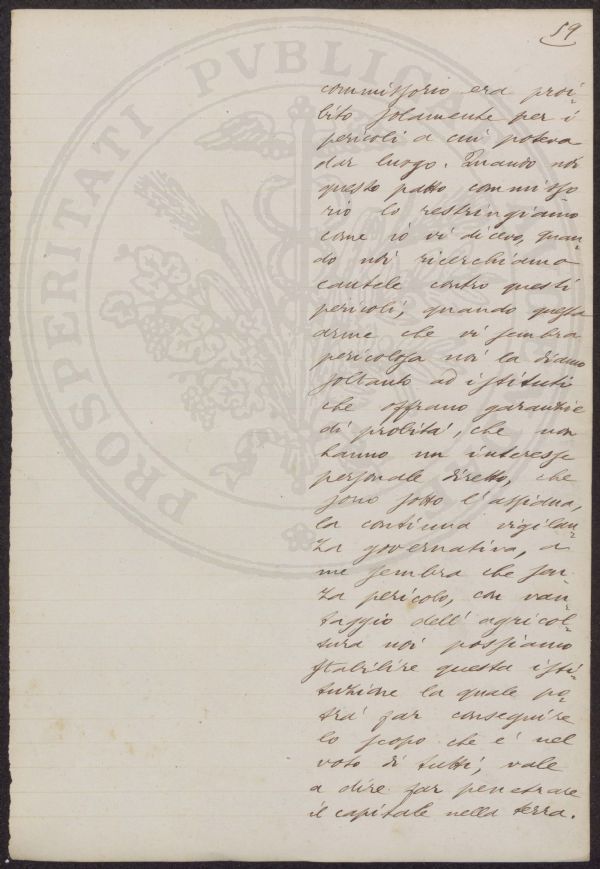 59
commissorio era proi-
bito solamente per i
pericoli a cui poteva
dar luogo. Quando noi
questo patto commisso
rio lo restringiamo
come io vi dicevo, quan-
do noi ricerchiamo
cautele contro questi
pericoli, quando questa
arme che vi sembra
pericolosa noi la diamo
soltanto ad istituti
che offrano garanzie
di probità, che non
hanno un interesse
personale diretto, che
sono sotto l'assidua,
la continua vigilan-
za governativa, a
me sembra che sen-
za pericolo, con van-
taggio dell'agricol-
tura noi possiamo
stabilire questa isti-
tuzione la quale po-
trà far conseguire
lo scopo che è nel
voto di tutti, vale
a dire far penetrare
il capitale nella terra.
PROSPERITATI PVBLICAE